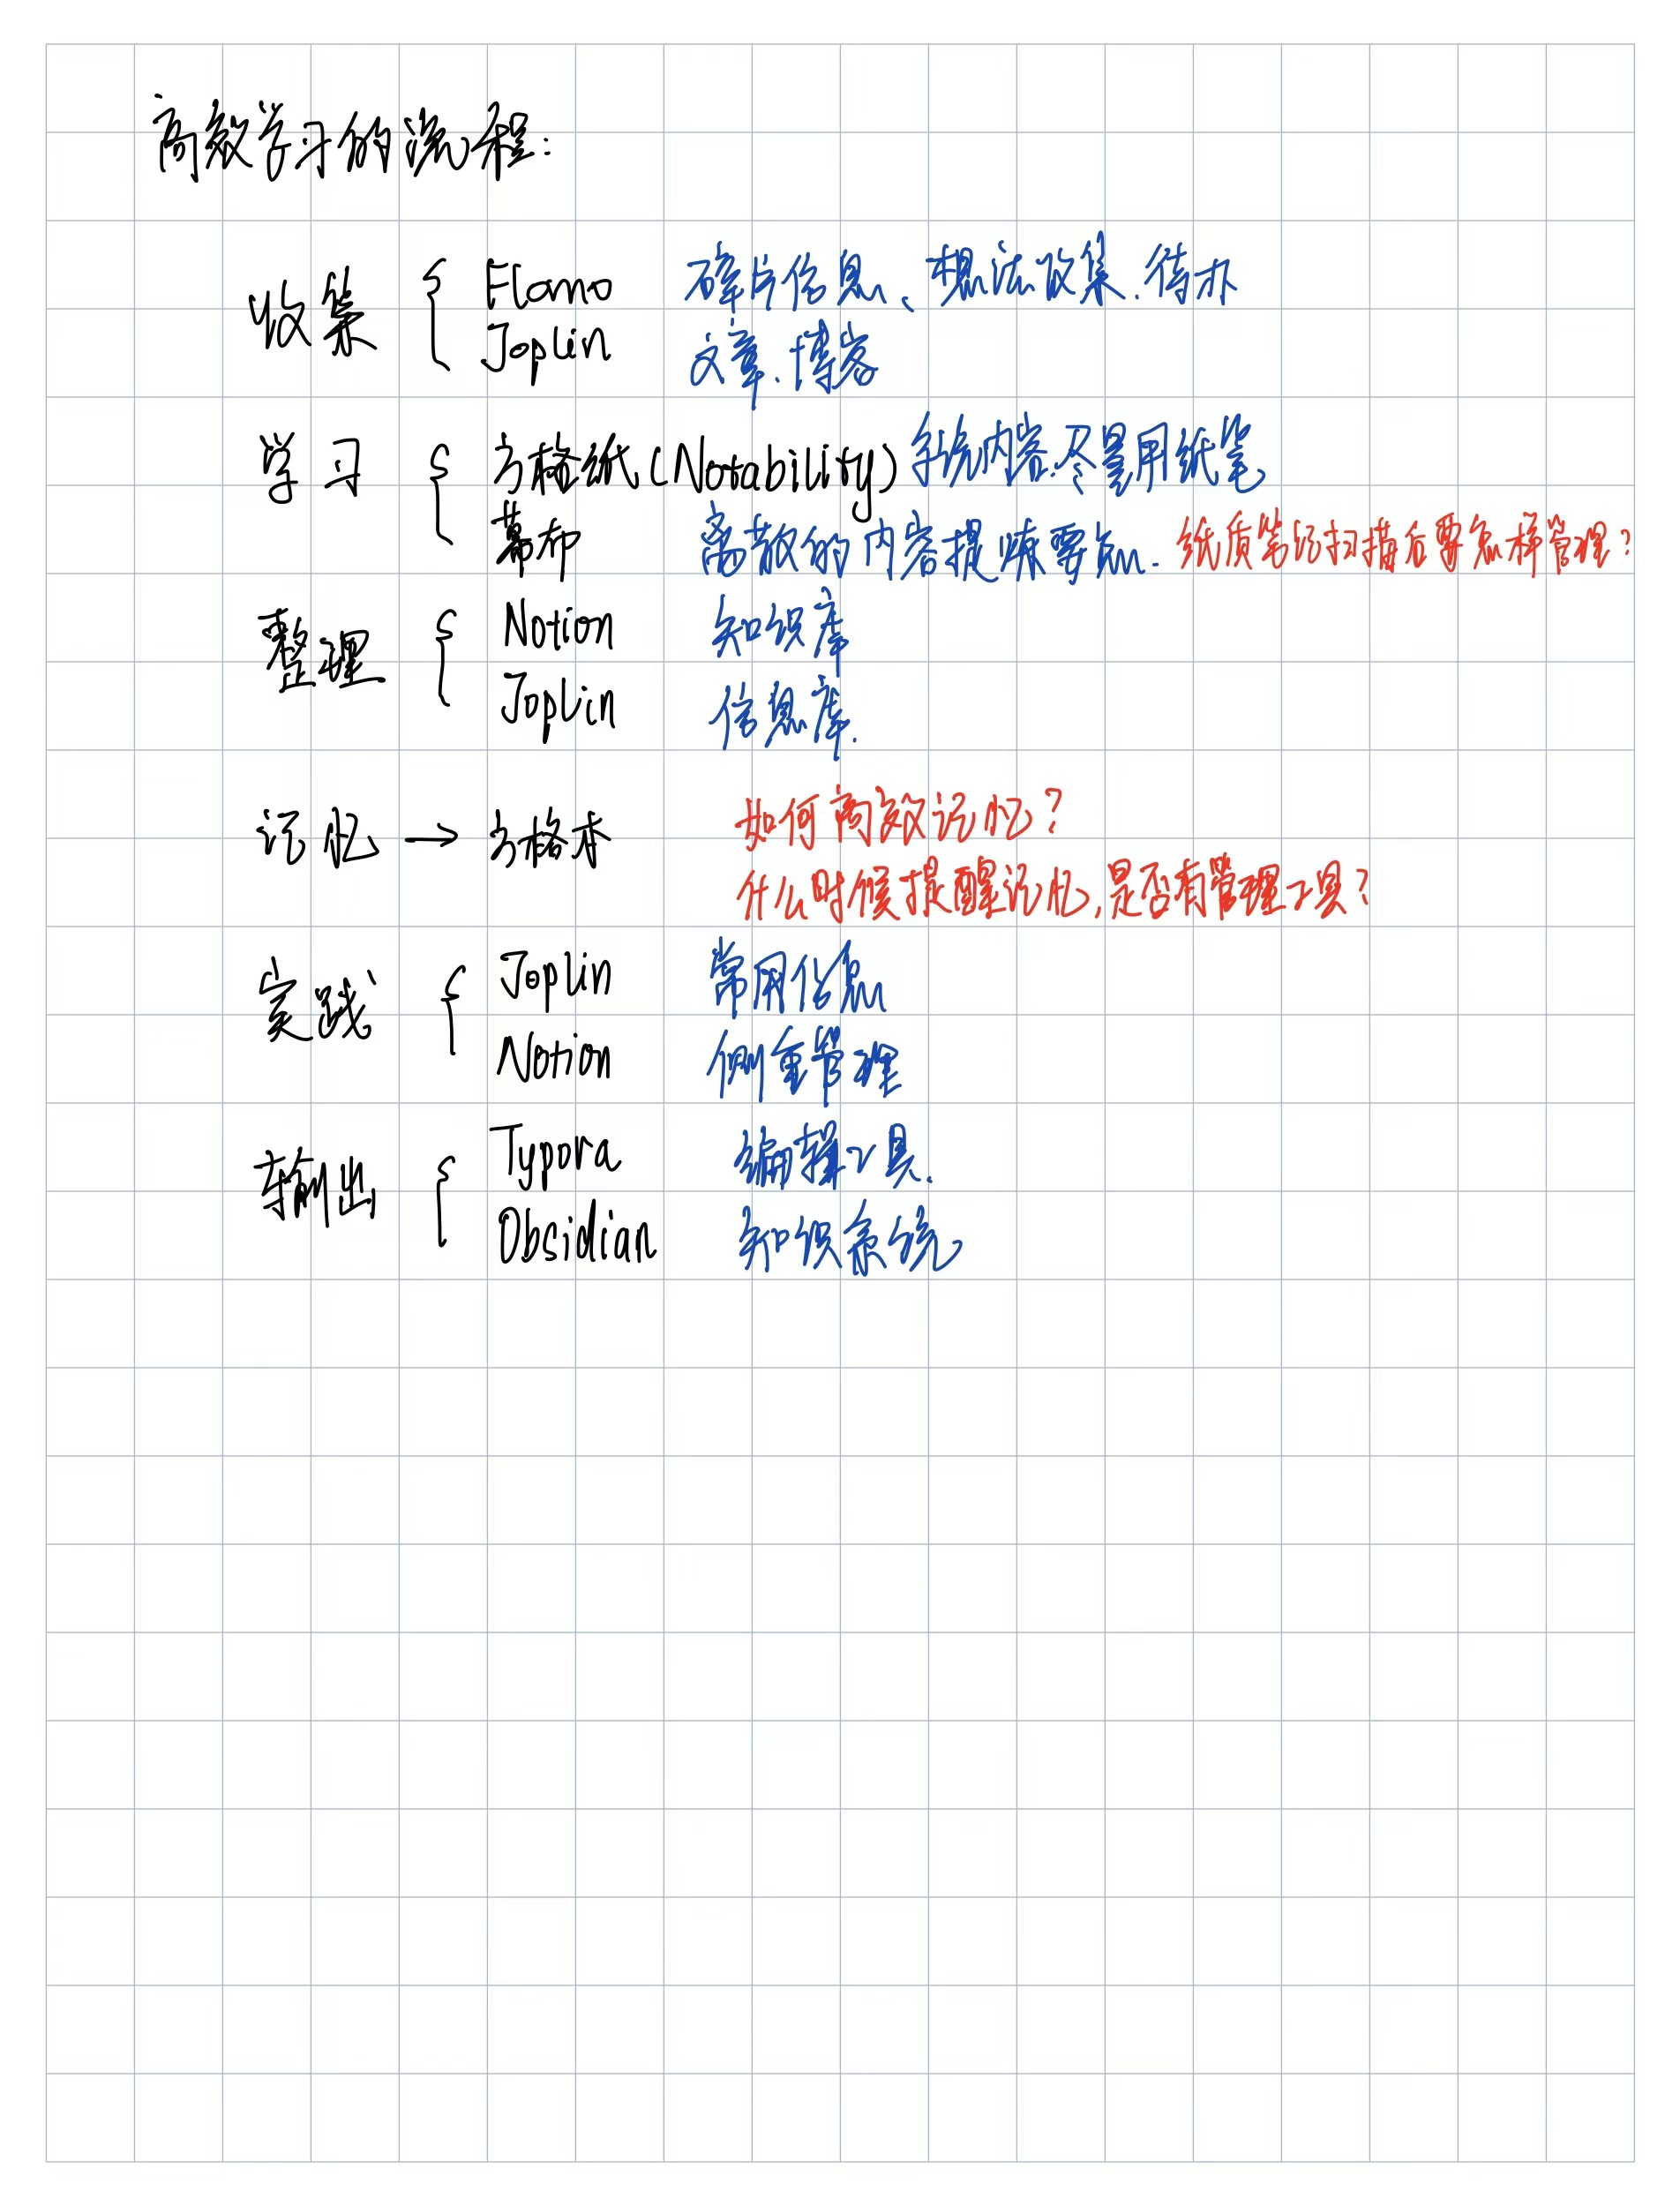 高效学习的流程:
收集 { Flomo 碎片信息、想法收集、待办
Joplin 文章、博客
学习 { 方格纸(Notability) 系统内容.尽量用纸笔
幕布 离散的内容提炼要点. 纸质笔记扫描后要怎样管理?
整理 { Notion 知识库
Joplin 信息库.
记忆 → 方格本 如何高效记忆?
什么时候提醒记忆,是否有管理工具?
实践 { Joplin 常用信息
Notion 侧重管理
输出 { Typora 编辑工具.
Obsidian 知识系统